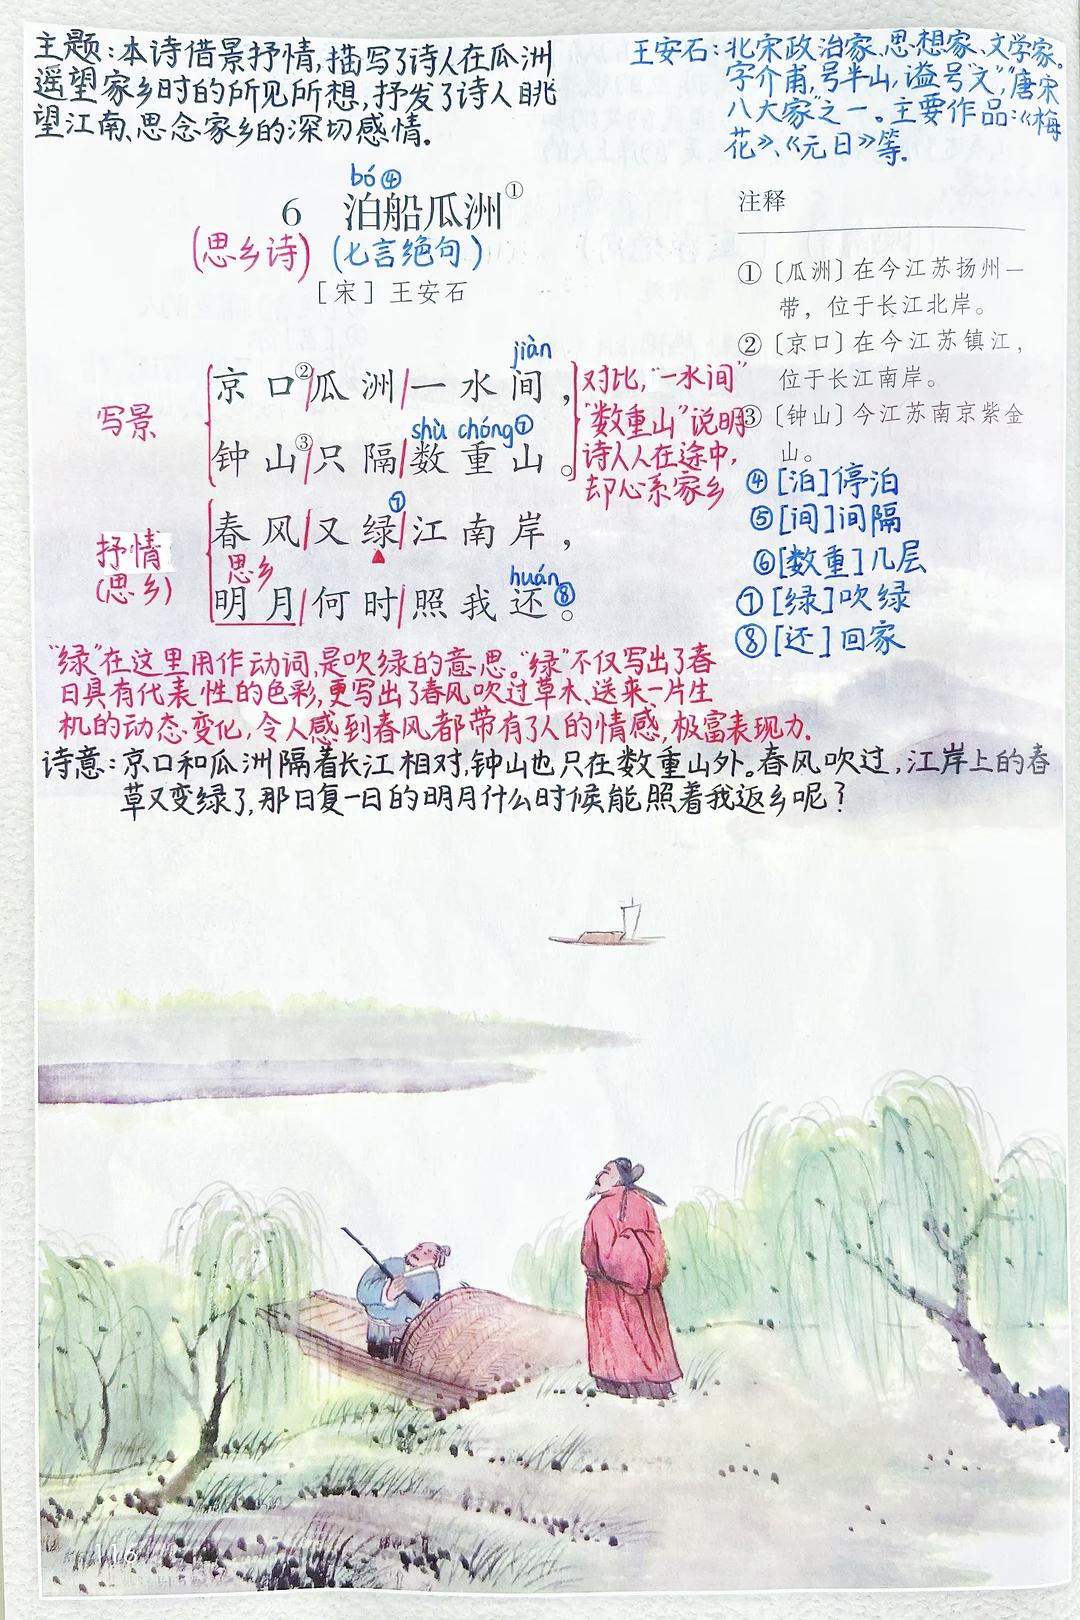 主题:本诗借景抒情,描写了诗人在瓜洲
遥望家乡时的所见所想,抒发了诗人眺
望江南、思念家乡的深切感情.
王安石:北宋政治家、思想家、文学家。
字介甫,号半山,谥号“文”,“唐宋
八大家”之一。主要作品:《梅
花》、《元日》等.
bó④
6 泊船瓜洲①
(思乡诗) (七言绝句)
[宋] 王安石
注释
①〔瓜洲〕在今江苏扬州一
带，位于长江北岸。
②〔京口〕在今江苏镇江，
位于长江南岸。
③〔钟山〕今江苏南京紫金
山。
④[泊]停泊
⑤[间]间隔
⑥[数重]几层
⑦[绿]吹绿
⑧[还]回家
写景
jiàn
京口②/瓜洲/一水间，
shù chóng⑦
钟山③/只隔/数重山。
对比,“一水间”
“数重山”说明
诗人人在途中,
却心系家乡
抒情
(思乡)
⑦
春风/又绿/江南岸，
思乡
huán⑧
明月/何时/照我还。
“绿”在这里用作动词,是吹绿的意思。“绿”不仅写出了春
日具有代表性的色彩,更写出了春风吹过草木、送来一片生
机的动态变化,令人感到春风都带有了人的情感,极富表现力.
诗意:京口和瓜洲隔着长江相对,钟山也只在数重山外。春风吹过,江岸上的春
草又变绿了,那日复一日的明月什么时候能照着我返乡呢?
116